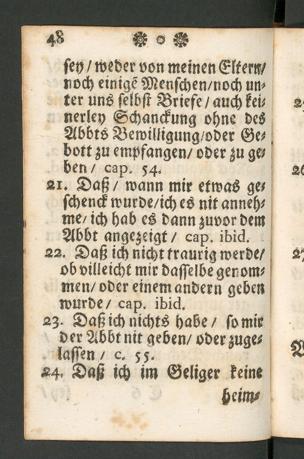 48
sey / weder von meinen Eltern /
noch einigẽ Menschen / noch un-
ter uns selbst Briefe / auch kei-
nerley Schanckung ohne des
Abbts Bewilligung / oder Ge-
bott zu empfangen / oder zu ge-
ben / cap. 54.
21. Daß / wann mir etwas ge-
schenckt wurde / ich es nit anneh-
me / ich hab es dann zuvor dem
Abbt angezeigt / cap. ibid.
22. Daß ich nicht traurig werde /
ob villeicht mir dasselbe genom-
men / oder einem andern geben
wurde / cap. ibid.
23. Daß ich nichts habe / so mir
der Abbt nit geben / oder zuge-
lassen / c. 55.
24. Daß ich im Geliger keine
heim-